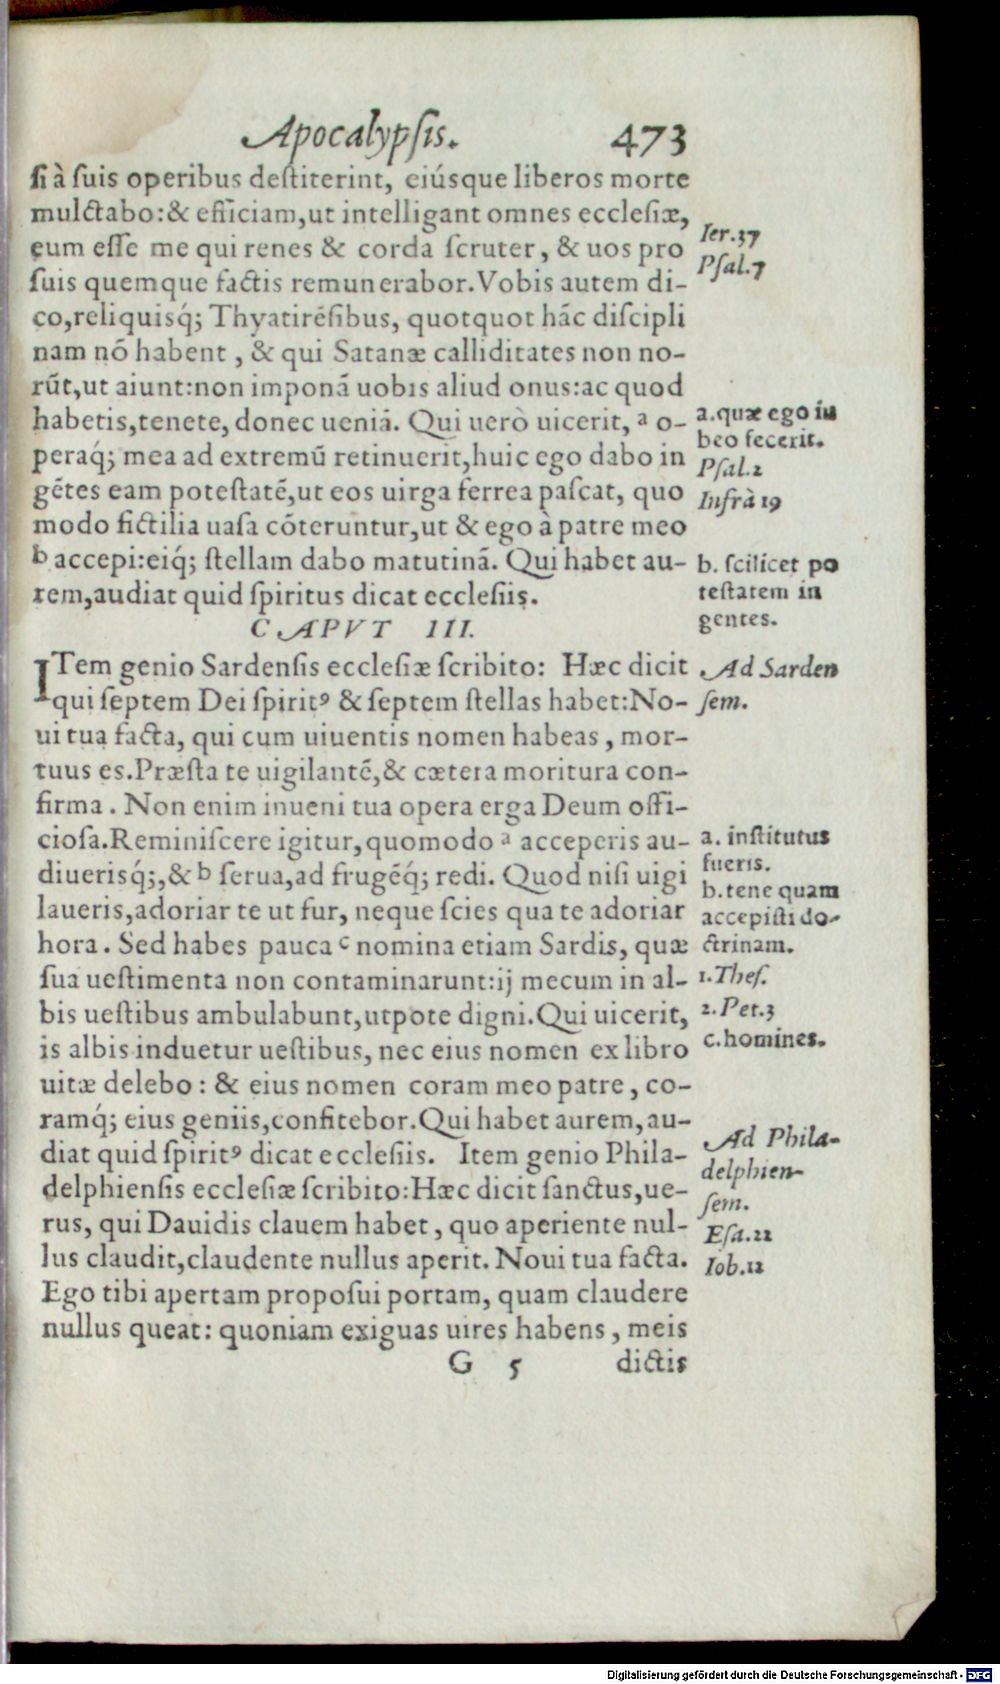 Apocalypsis. 473
si à suis operibus destiterint, eiúsque liberos morte
mulctabo:& efficiam,ut intelligant omnes ecclesiæ,
eum esse me qui renes & corda scruter, & uos pro
suis quemque factis remunerabor.Vobis autem di-
co,reliquisq́; Thyatirēsibus, quotquot hāc discipli
nam nō habent, & qui Satanæ calliditates non no-
rūt,ut aiunt:non imponā uobis aliud onus:ac quod
habetis,tenete, donec ueniā. Qui uerò uicerit, ᵃ o-
peraq́; mea ad extremū retinuerit,huic ego dabo in
gētes eam potestatē,ut eos uirga ferrea pascat, quo
modo fictilia uasa cōteruntur,ut & ego à patre meo
ᵇ accepi:eiq́; stellam dabo matutinā. Qui habet au-
rem,audiat quid spiritus dicat ecclesiis.
Ier.37
Psal.7
a.quæ ego iu
beo fecerit.
Psal.2
Infrà 19
b. scilicet po
testatem in
gentes.
CAPVT III.
ITem genio Sardensis ecclesiæ scribito: Hæc dicit
qui septem Dei spiritꝰ & septem stellas habet:No-
ui tua facta, qui cum uiuentis nomen habeas, mor-
tuus es.Præsta te uigilantē,& cætera moritura con-
firma. Non enim inueni tua opera erga Deum offi-
ciosa.Reminiscere igitur,quomodo ᵃ acceperis au-
diuerisq́;,& ᵇ serua,ad frugēq́; redi. Quod nisi uigi
laueris,adoriar te ut fur, neque scies qua te adoriar
hora. Sed habes pauca ᶜ nomina etiam Sardis, quæ
sua uestimenta non contaminarunt:ij mecum in al-
bis uestibus ambulabunt,utpote digni.Qui uicerit,
is albis induetur uestibus, nec eius nomen ex libro
uitæ delebo: & eius nomen coram meo patre, co-
ramq́; eius geniis,confitebor.Qui habet aurem,au-
diat quid spiritꝰ dicat ecclesiis. Item genio Phila-
delphiensis ecclesiæ scribito:Hæc dicit sanctus,ue-
rus, qui Dauidis clauem habet, quo aperiente nul-
lus claudit,claudente nullus aperit. Noui tua facta.
Ego tibi apertam proposui portam, quam claudere
nullus queat: quoniam exiguas uires habens, meis
Ad Sarden
sem.
a. institutus
fueris.
b.tene quam
accepisti do-
ctrinam.
1.Thes.
2.Pet.3
c.homines.
Ad Phila-
delphien-
sem.
Esa.22
Iob.12
G 5 dictis
Digitalisierung gefördert durch die Deutsche Forschungsgemeinschaft - DFG